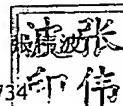 张伟
波印
734